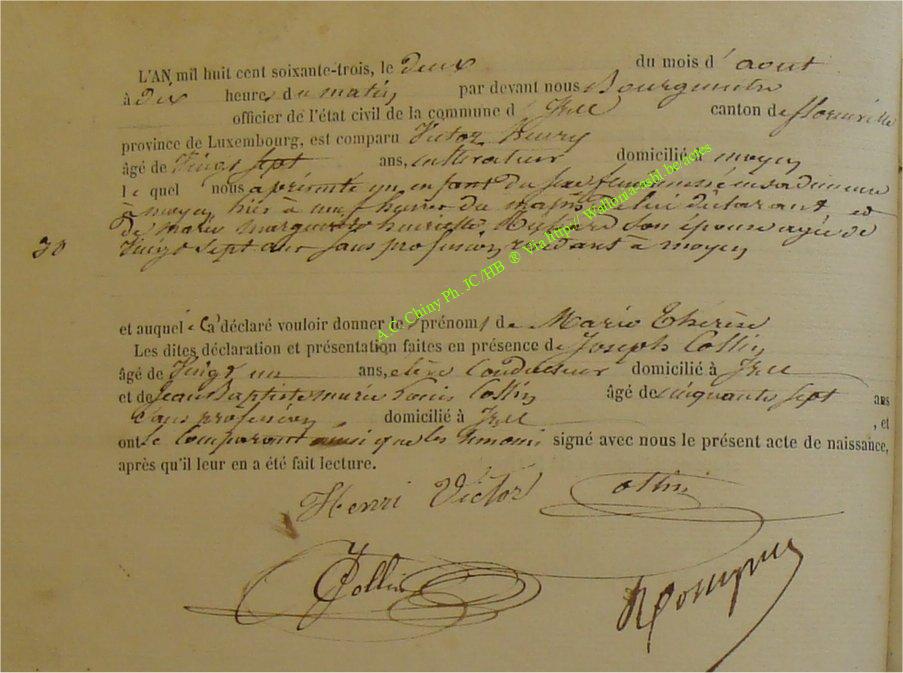 L'AN mil huit cent soixante-trois, le deux du mois d'aout
à dix heures du matin par devant nous Bourgmestre
officier de l'état civil de la commune d'Izel canton de florenville
province de Luxembourg, est comparu Victor Henry
âgé de Vingt sept ans, cultivateur domicilié à moyen
lequel nous a présenté un enfant du sexe féminin né en sa demeure
à moyen hier à heures du matin de lui déclarant et
de marie marguerite son épouse agée de
30 Vingt sept ans sans profession, résidant à moyen
A.C. Chiny Ph. JC/HB ® Via http:// Wallonia-asbl.be/actes
et auquel il a déclaré vouloir donner les prénoms de Marie Thérèse
Les dites déclaration et présentation faites en présence de Joseph Collin
âgé de Vingt un ans, élève Conducteur domicilié à Izel
et de Jean Baptiste marie Louis Collin âgé de cinquante sept ans
Sans profession domicilié à Izel , et
ont le Comparant ainsi que les témoins signé avec nous le présent acte de naissance,
après qu'il leur en a été fait lecture.
Henri Victor Collin
J Collin